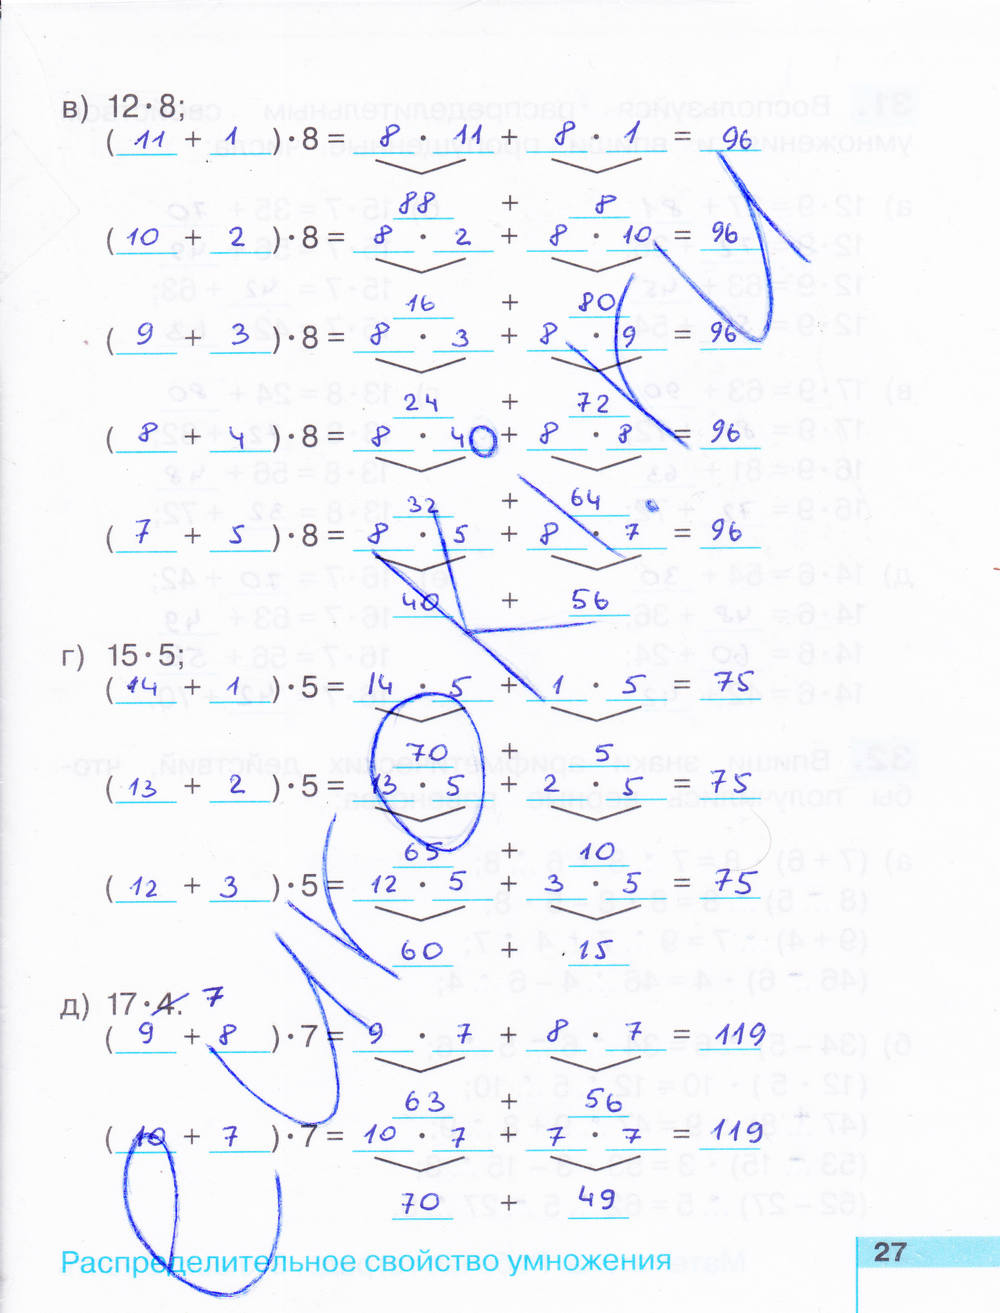 в) 12·8;
( 11 + 1 )·8 = 8 · 11 + 8 · 1 = 96
88 + 8
( 10 + 2 )·8 = 8 · 2 + 8 · 10 = 96
16 + 80
( 9 + 3 )·8 = 8 · 3 + 8 · 9 = 96
24 + 72
( 8 + 4 )·8 = 8 · 4 + 8 · 8 = 96
32 + 64
( 7 + 5 )·8 = 8 · 5 + 8 · 7 = 96
40 + 56
г) 15·5;
( 14 + 1 )·5 = 14 · 5 + 1 · 5 = 75
70 + 5
( 13 + 2 )·5 = 13 · 5 + 2 · 5 = 75
65 + 10
( 12 + 3 )·5 = 12 · 5 + 3 · 5 = 75
60 + 15
д) 17·4. 7
( 9 + 8 )·7 = 9 · 7 + 8 · 7 = 119
63 + 56
( 10 + 7 )·7 = 10 · 7 + 7 · 7 = 119
70 + 49
Распределительное свойство умножения
27